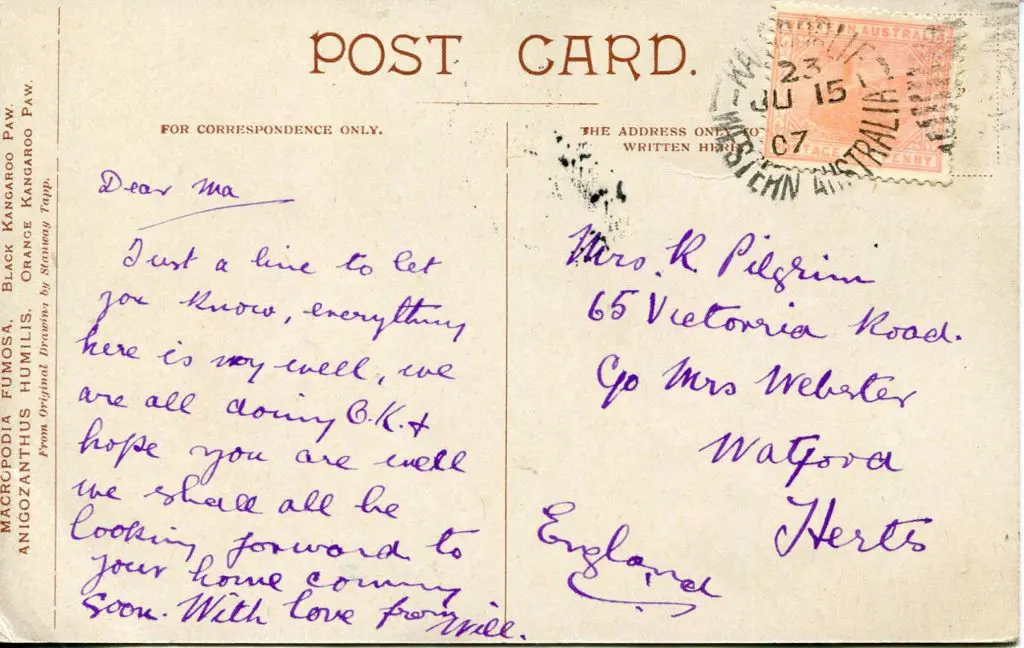 POST CARD.
FOR CORRESPONDENCE ONLY.
THE ADDRESS ONLY TO
WRITTEN HERE
MACROPODIA FUMOSA, BLACK KANGAROO PAW.
ANIGOZANTHUS HUMILIS, ORANGE KANGAROO PAW.
From Original Drawing by Stonway Tapp.
Dear Ma
Just a line to let
you know, everything
here is vry well, we
are all doing O.K. &
hope you are well
we shall all be
looking forward to
your home coming
soon. With love from Will.
Mrs. K. Pilgrim
65 Victorria Road.
C/o Mrs Webster
Watford
Herts
England
23
JU 15
07
WESTERN AUSTRALIA
AUSTRAL
PENNY